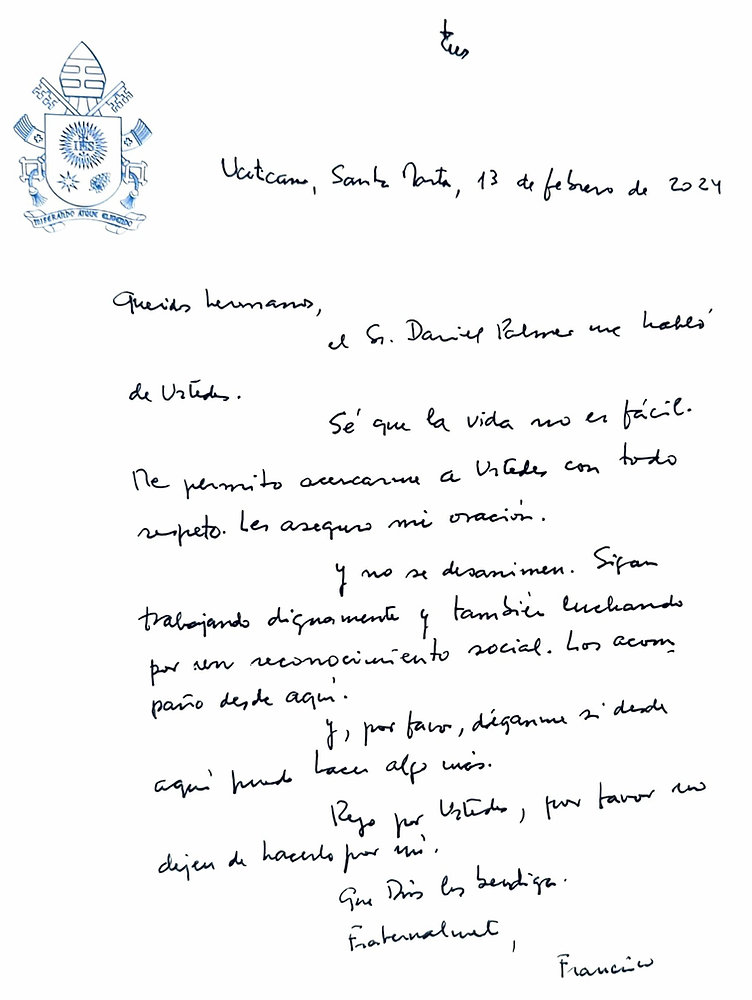 IHS
MISERANDO ATQUE ELIGENDO
Vaticano, Santa Marta, 13 de febrero de 2024
Queridos hermanos,
el Sr. Daniel Palmer me habló
de Ustedes.
Sé que la vida no es fácil.
Me permito acercarme a Ustedes con todo
respeto. Les aseguro mi oración.
Y no se desanimen. Sigan
trabajando dignamente y también luchando
por un reconocimiento social. Los acom
paño desde aquí.
Y, por favor, díganme si desde
aquí puedo hacer algo más.
Rezo por Ustedes, por favor no
dejen de hacerlo por mí.
Que Dios los bendiga.
Fraternalmente,
Francisco